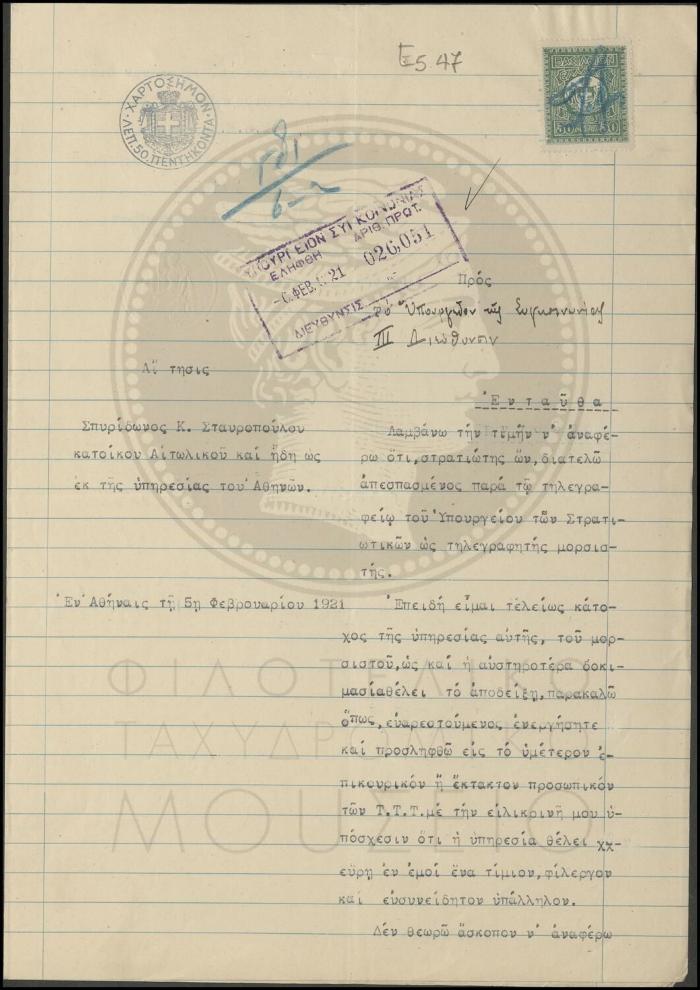 Ξ5 47
ΧΑΡΤΟΣΗΜΟΝ
ΛΕΠ. 50. ΠΕΝΤΗΚΟΝΤΑ
50
50
6-2
ΥΠΟΥΡΓΕΙΟΝ ΣΥΓΚΟΙΝΩΝΙΑΣ
ΕΛΗΦΘΗ ΑΡΙΘ. ΠΡΩΤ.
-6.ΦΕΒ.1921 026,051
ΔΙΕΥΘΥΝΣΙΣ
Πρός
τό Ὑπουργεῖον τῆς Συγκοινωνίας
III Διεύθυνσιν
Αἴ τησις
Ἐνταῦθα
Σπυρίδωνος Κ. Σταυροπούλου
κατοίκου Αἰτωλικοῦ καί ἤδη ὡς
ἐκ τῆς ὑπηρεσίας του Ἀθηνῶν.
Ἐν Ἀθήναις τῇ 5ῃ Φεβρουαρίου 1921
Λαμβάνω τήν τιμήν ν' ἀναφέ-
ρω ὅτι,στρατιώτης ὤν,διατελῶ
ἀπεσπασμένος παρά τῷ τηλεγρα-
φείῳ τοῦ Ὑπουργείου τῶν Στρατι-
ωτικῶν ὡς τηλεγραφητής μορσισ-
τής.
Ἐπειδή εἶμαι τελείως κάτο-
χος τῆς ὑπηρεσίας αὐτῆς, τοῦ μορ-
σιστοῦ,ὡς καί ἡ αὐστηροτέρα δοκι-
μασίαθέλει τό ἀποδείξῃ,παρακαλῶ
ὅπως,εὐαρεστούμενος ἐνεργήσητε
καί προσληφθῶ εἰς τό ὑμέτερον ἐ-
πικουρικόν ἤ ἔκτακτον προσωπικόν
τῶν Τ.Τ.Τ.μέ τήν εἰλικρινῆ μου ὑ-
πόσχεσιν ὅτι ἡ ὑπηρεσία θέλει χχ
εὕρῃ ἐν ἐμοί ἕνα τίμιον,φίλεργον
καί εὐσυνείδητον ὑπάλληλον.
Δέν θεωρῶ ἄσκοπον ν' ἀναφέρω
ΦΙΛΟΤΕΛΙΚΟ
ΤΑΧΥΔΡΟΜΙΚΟ
ΜΟΥΣΕΙΟ